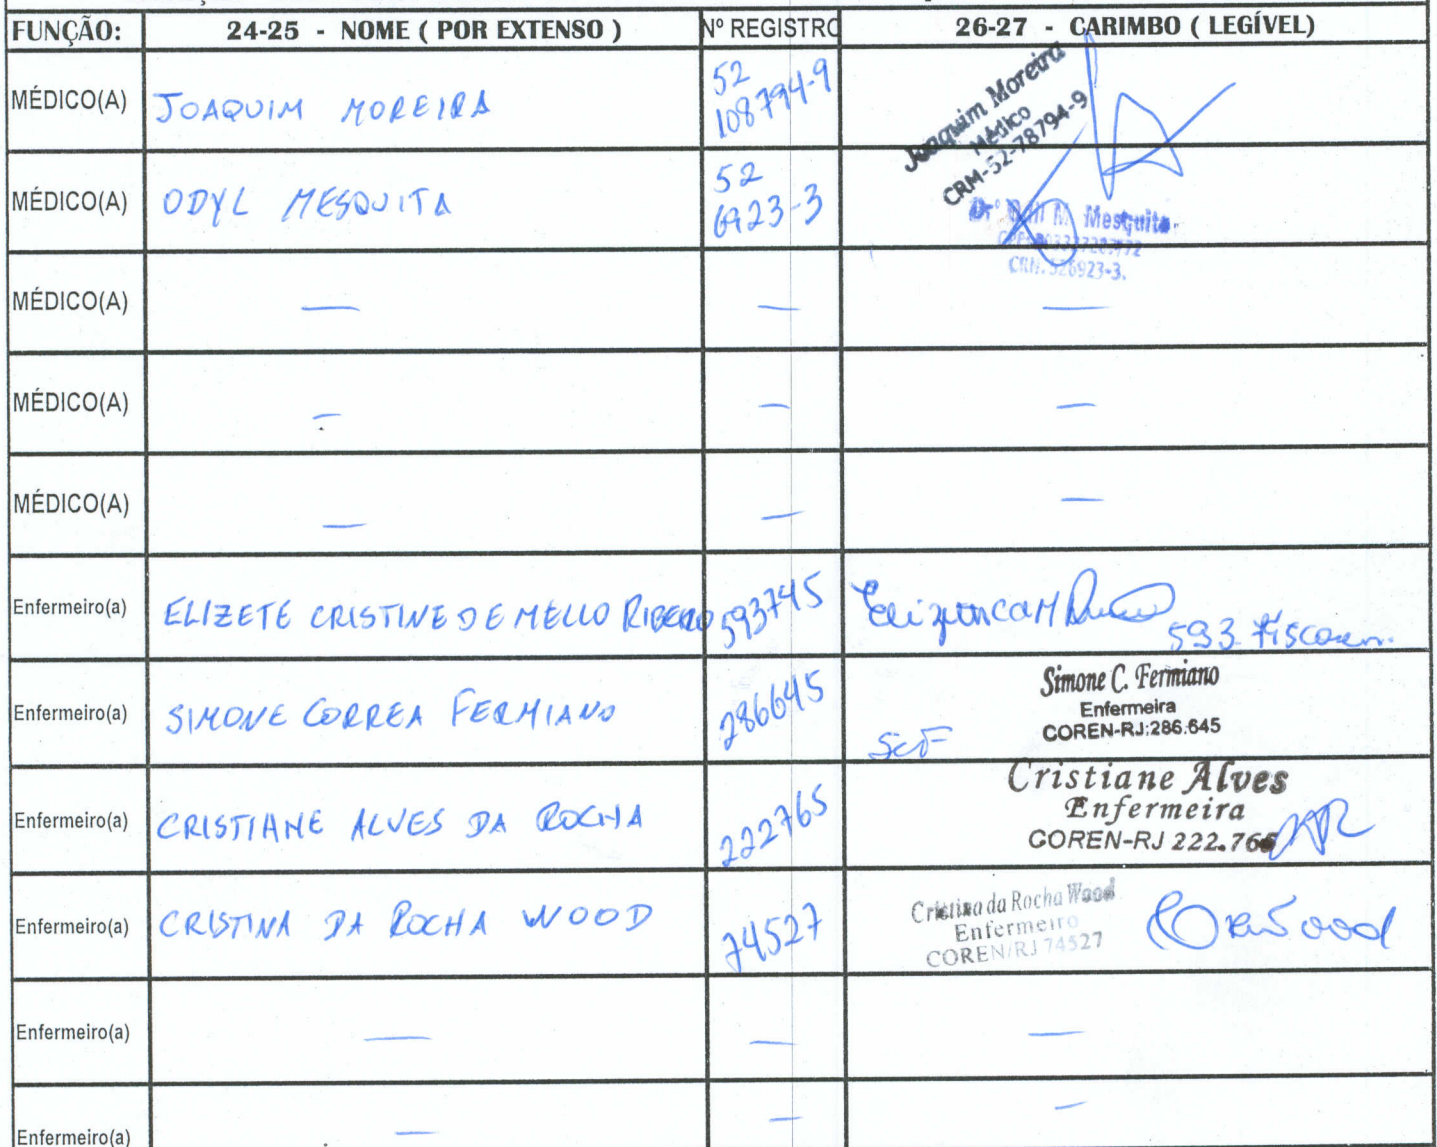 FUNÇÃO: 24-25 - NOME ( POR EXTENSO ) Nº REGISTRO 26-27 - CARIMBO ( LEGÍVEL)
MÉDICO(A) JOAQUIM MOREIRA 52
108794-9
Joaquim Moreira
Médico
CRM-52-78794-9
MÉDICO(A) ODYL MESQUITA 52
6923-3
Dr. M. Mesquita
CRM. 526923-3.
MÉDICO(A) — — —
MÉDICO(A) — — —
MÉDICO(A) — — —
Enfermeiro(a) ELIZETE CRISTINE DE MELLO RIBEIRO 593745
Enfermeiro(a) SIMONE CORREA FERMIANO 286645
Simone C. Fermiano
Enfermeira
COREN-RJ:286.645
SCF
Enfermeiro(a) CRISTIANE ALVES DA ROCHA 222765
Cristiane Alves
Enfermeira
COREN-RJ 222.765
Enfermeiro(a) CRISTINA DA ROCHA WOOD 74527
Cristina da Rocha Wood
Enfermeiro
COREN/RJ 74527
Enfermeiro(a) — — —
Enfermeiro(a) — — —